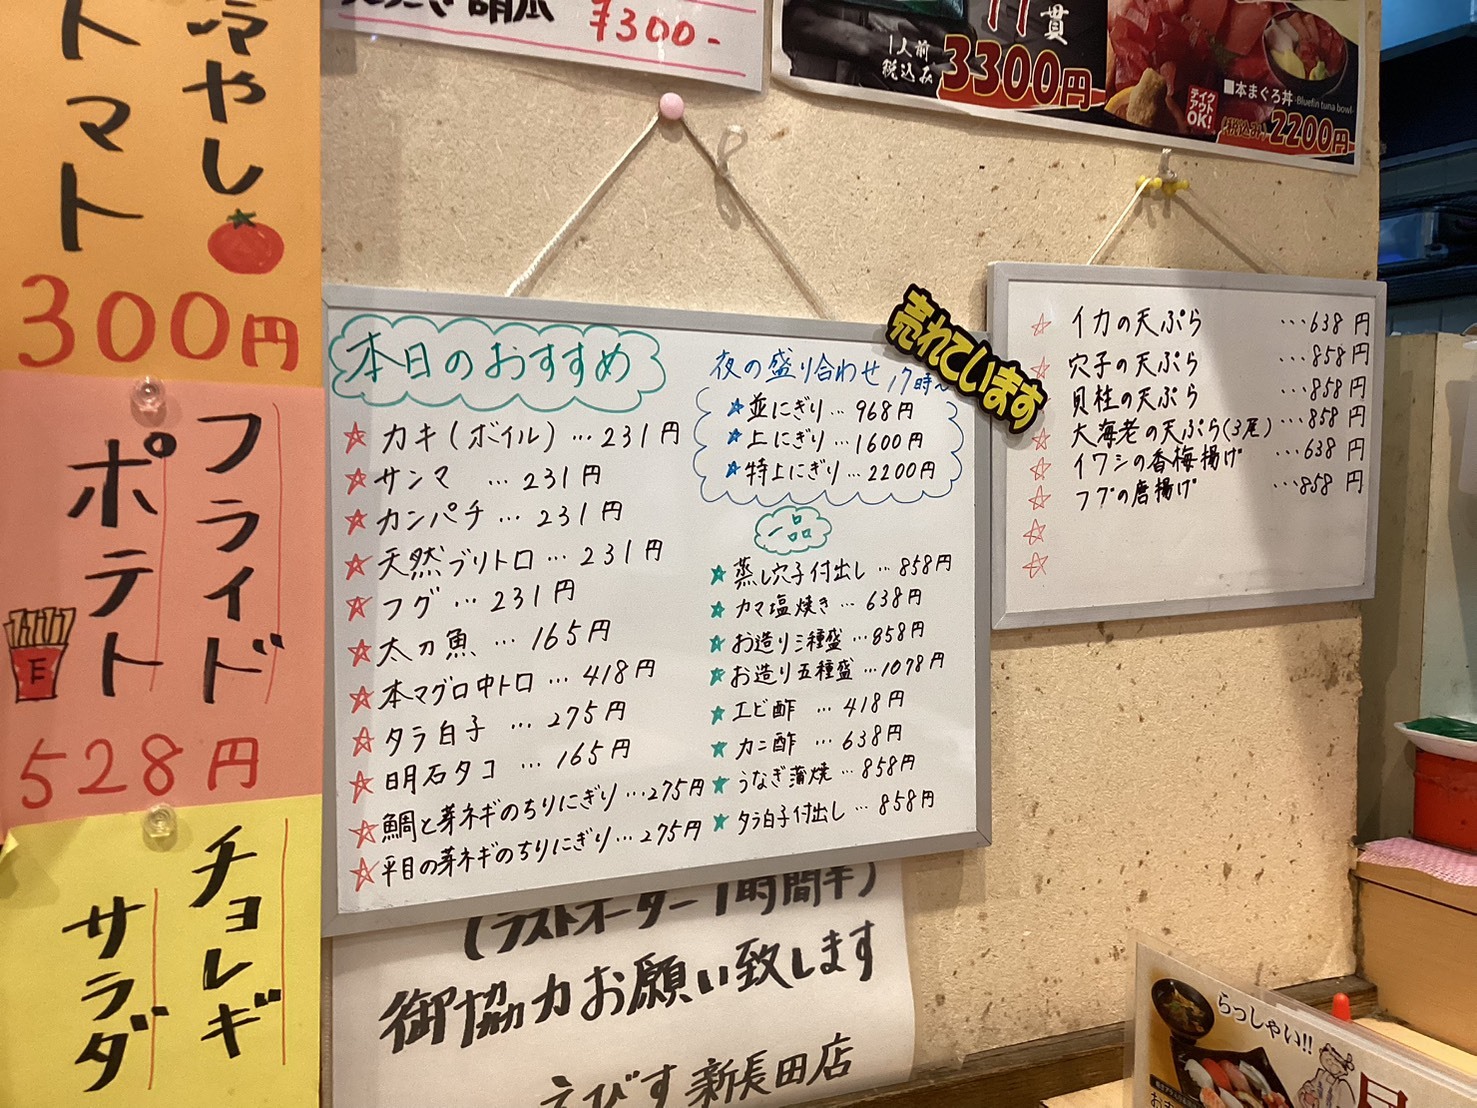 冷やし
トマト
300円
フライド
ポテト
528円
チョレギ
サラダ
¥300-
11貫
1人前
税込み
3300円
テイクアウトOK!
■本まぐろ丼
-Bluefin tuna bowl-
(税込み)2200円
本日のおすすめ
☆カキ(ボイル)…231円
☆サンマ …231円
☆カンパチ…231円
☆天然ブリトロ…231円
☆フグ…231円
☆太刀魚…165円
☆本マグロ中トロ…418円
☆タラ白子 …275円
☆明石タコ …165円
☆鯛と芽ネギのちりにぎり…275円
☆平目の芽ネギのちりにぎり…275円
夜の盛り合わせ 17時〜
★並にぎり…968円
★上にぎり…1600円
★特上にぎり…2200円
一品
★蒸し穴子付出し…858円
★カマ塩焼き…638円
★お造り三種盛…858円
★お造り五種盛…1078円
★エビ酢 …418円
★カニ酢 …638円
★うなぎ蒲焼…858円
★タラ白子付出し…858円
売れています
☆イカの天ぷら …638円
☆穴子の天ぷら …858円
☆貝柱の天ぷら …858円
☆大海老の天ぷら(3尾)…858円
☆イワシの香梅揚げ …638円
☆フグの唐揚げ …858円
☆
☆
(ラストオーダー1時間半)
御協力お願い致します
えびす新長田店
らっしゃい!!